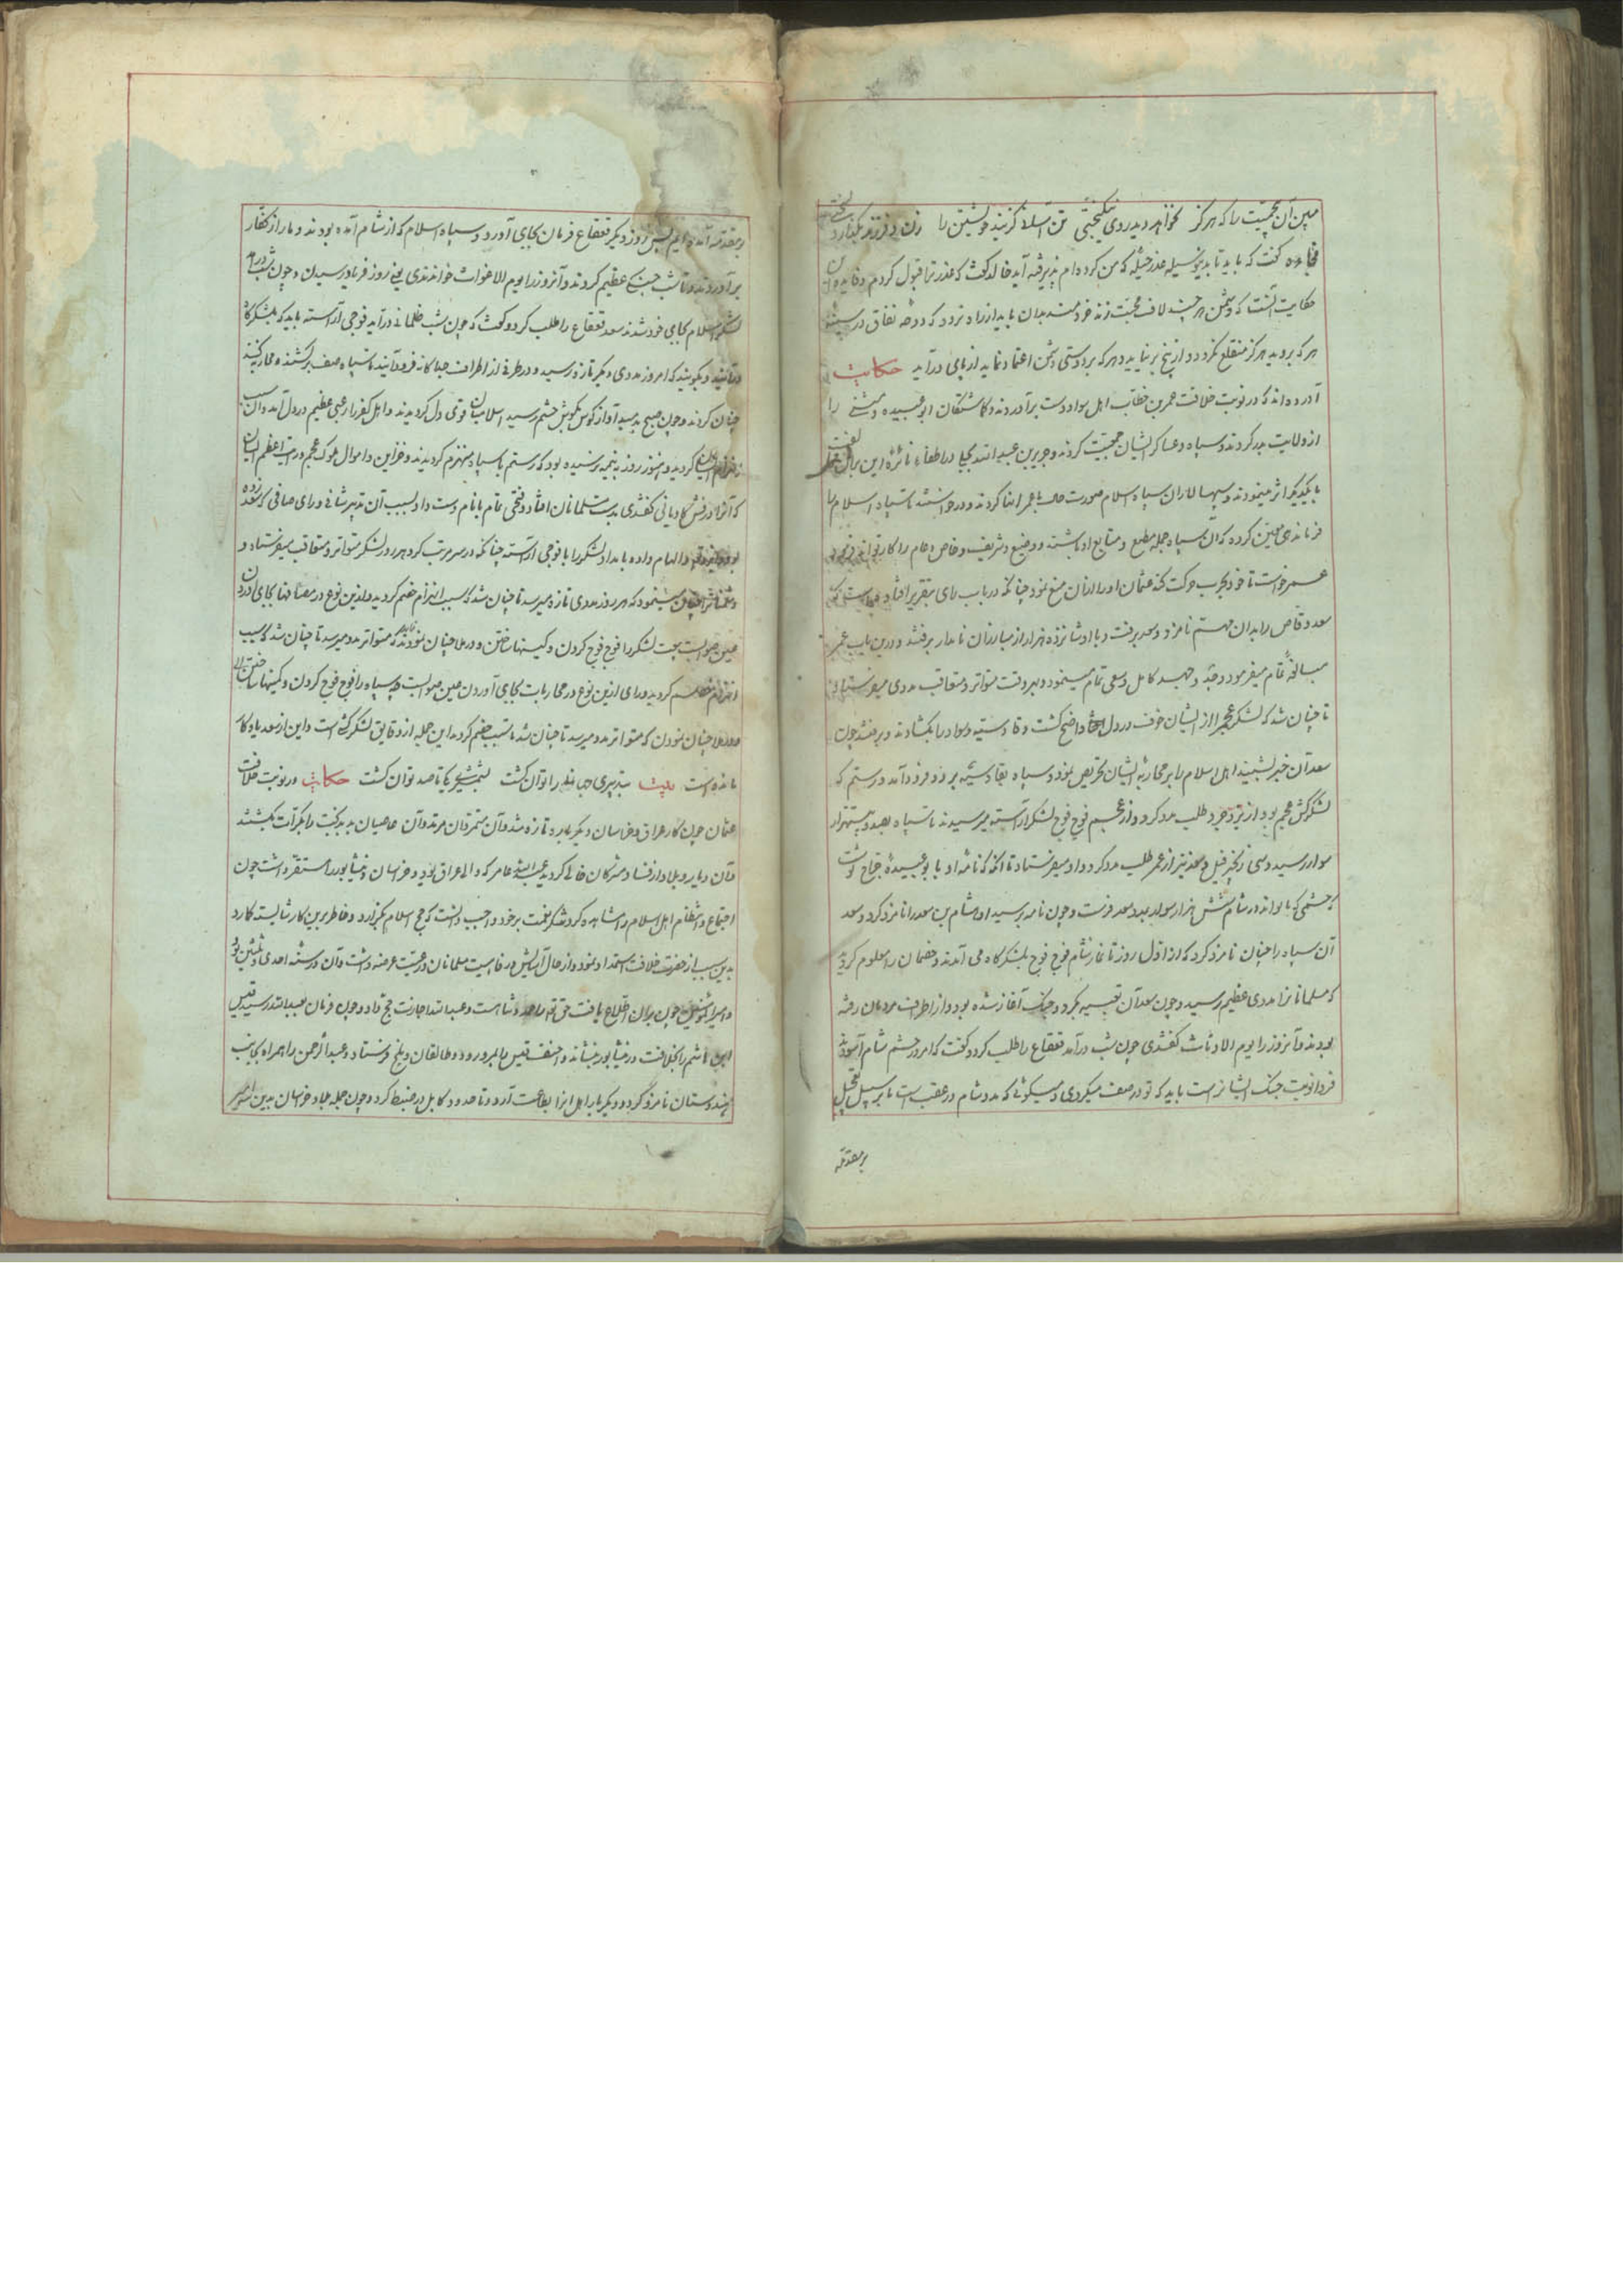 مبین آن بیحمیت را که هرگز نخواهد دید روی نیکبختی تن آسانی گزیند خویشتن را زن و فرزند بگذارد بسختی
گفت که باید تا بدین وسیله عذر حیله که من کرده ام پذیرفته آید خالد گفت که عذر ترا قبول کردم و فایده این
حکایت آنست که دشمن هر چند لاف محبت زند خردمند بدان باید از راه نرود که دوحه نفاق در سینه
هر که بروید هرگز منقلع نگردد و از بیخ برنیاید و هر که بر دوستی دشمن اعتماد نماید از پای درآید حکایت
آورده اند که در نوبت خلافت عمر بن خطاب اهل سواد دست برآوردند و گماشتگان ابو عبیده و مثنی را
از ولایت بدر کردند و سپاه و عساکر ایشان جمعیت کردند و جریر بن عبد الله بجیلی در اطفاء نائره این
با یکدیگر اثر مینمودند و سپهسالاران سپاه اسلام صورت حال با عمر انها کردند و درخواستند تا سپاه اسلام را
فرماندهی معین کرده که آن سپاه جمله مطیع و متابع او باشند و وضیع و شریف و خاص و عام را کار
عمر خواست تا خود بحرب حرکت کند عثمان او را از آن منع نمود چنانکه در باب رای بتقریر افتاد
سعد وقاص را بدان مهم نامزد و سعد برفت و با او شانزده هزار از مبارزان نامدار برفتند و درین باب عمر
مبالغه تمام میفرمود و جد و جهد کامل و سعی تمام مینمود و بهر وقت متواتر و متعاقب مددی میفرستاد
تا چنان شد که لشکر عجم را از ایشان خوف در دل افتاد واضح گشت و قادسیه و سواد را بگشادند و برفتند چون
سعد آن خبر بشنید اهل اسلام را بر محاربه ایشان تحریض نمود و سپاه بقادسیه برد و فرود آمد و رستم که
لشکرکش عجم بود از یزدجرد طلب مدد کرد و از عجم فوج فوج لشکر آراسته میرسیدند تا سپاه بصد و بیست هزار
سوار رسید و سی زنجیر فیل و سعد نیز از عمر طلب مدد کرد و او میفرستاد تا آنکه که نامه او با بو عبیده جراح نوشت
که حشمی که با او اند در شام شش هزار سوار بمدد سعد فرست و چون نامه برسید او هشام بن سعد را نامزد کرد و سعد
آن سپاه را چنان نامزد کرد که از اول روز تا نماز شام فوج فوج بلشکرگاه می آمدند و خصمان را معلوم گردید
که مسلمانان را مددی عظیم رسید و چون سعد آن تعبیه بکرد و جنگ آغاز شده بود و از اطراف مردمان رفته
بودند و آنروز را یوم الارماث گفتندی چون شب درآمد قعقاع را طلب کرد و گفت که امروز حشم شام آسودند
فردا نوبت جنگ ایشانراست باید که تو در صف میگردی و میگوئی که مدد شام در عقب است تا بر سبیل تعجیل
بر مقدمه
بر مقدمه آمده ایم پس روز دیگر قعقاع فرمان بجای آورد و سپاه اسلام که از شام آمده بودند دمار از کفار
برآوردند و تا شب جنگ عظیم کردند و آنروز را یوم الاغواث خواندندی یعنی روز فریاد رسیدن و چون شب درآمد
لشکر اسلام بجای خود شدند سعد قعقاع را طلب کرد و گفت که چون شب ظلمانی درآید فوجی آراسته باید که بلشکرگاه
درآیند و بگویند که امروز مددی دیگر تازه رسید و در طرفی از اطراف جداگانه فرود آیند تا سپاه صف برکشند و محاربه کنند
چنان کردند و چون صبح بدمید آواز کوس بگوش حشم رسید اسلامیان قوی دل گردیدند و اهل کفر را رعبی عظیم در دل آمد و آن سبب
انهزام ایشان گردید و هنوز روز به نیمه نرسیده بود که رستم با سپاه منهزم گردیدند و خزاین و اموال ملوک عجم و رایت اعظم ایشان
که آنرا درفش کاویانی گفتندی بدست مسلمانان افتاد و فتحی تمام با نام دست داد بسبب آن تدبیر شافی و رای صافی که سعد زده
بود الهام داده بامداد لشکر را با فوجی آراسته چنانکه در سر مرتب کرد هر روز لشکر متواتر و متعاقب میفرستاد و
مینمود که هر روز مددی تازه میرسد تا چنان شد که سبب انهزام خصم گردید و ازین نوع در مصافها بجای آوردن
عین صوابست بجهت لشکر را فوج فوج کردن و کمینها ساختن و در ملا چنان نمودند که متواتر مدد میرسد تا چنان شد که سبب
انهزام خصم گردید و رای ازین نوع در محاربات بجای آوردن عین صوابست و سپاه را فوج فوج کردن و کمینها ساختن
و در ملا چنان نمودن که متواتر مدد میرسد تا چنان شد تا سبب خصم گردد این جمله از دقایق لشکرکشی است و این از سعد یادگار
مانده است بیت بتدبیری جهانی را توان کشت بشمشیری یکی تا صد توان کشت حکایت در نوبت خلافت
عثمان چون کار عراق و خراسان دیگر باره تازه شد و آن متمردان مرتد و آن عاصیان بد بدبخت را بکرات بکشتند
و آن دیار و بلاد از فساد مشرکان خالی گردید عبدالله عامر که والی عراق بود و خراسان و نیشابور را مستقر داشت چون
اجتماع و انتظام اهل اسلام را مشاهده کرد شکر نعمت بر خود واجب دانست که حج اسلام بگزارد و خاطر برین کار شایسته گمارد
بدین سبب از حضرت خلافت استمداد نمود و از حال آسایش و رفاهیت مسلمانان و رعیت عرضه داشت و آن در سنه احدی و ثلثین بود
و امیر المؤمنین چون بر آن اطلاع یافت و عبدالله را اجازت حج داد و چون فرمان بعبدالله رسید قیس
ابن هاشم را بخلافت در نیشابور بنشاند و احنف قیس را بمرو رود و طالقان و بلخ فرستاد و عبد الرحمن را همراه بجانب
هندوستان نامزد کرد و دیگر بار اهل آنرا بطاعت آورد و تا حدود کابل در ضبط کرد و چون جمله بلاد خراسان بدین